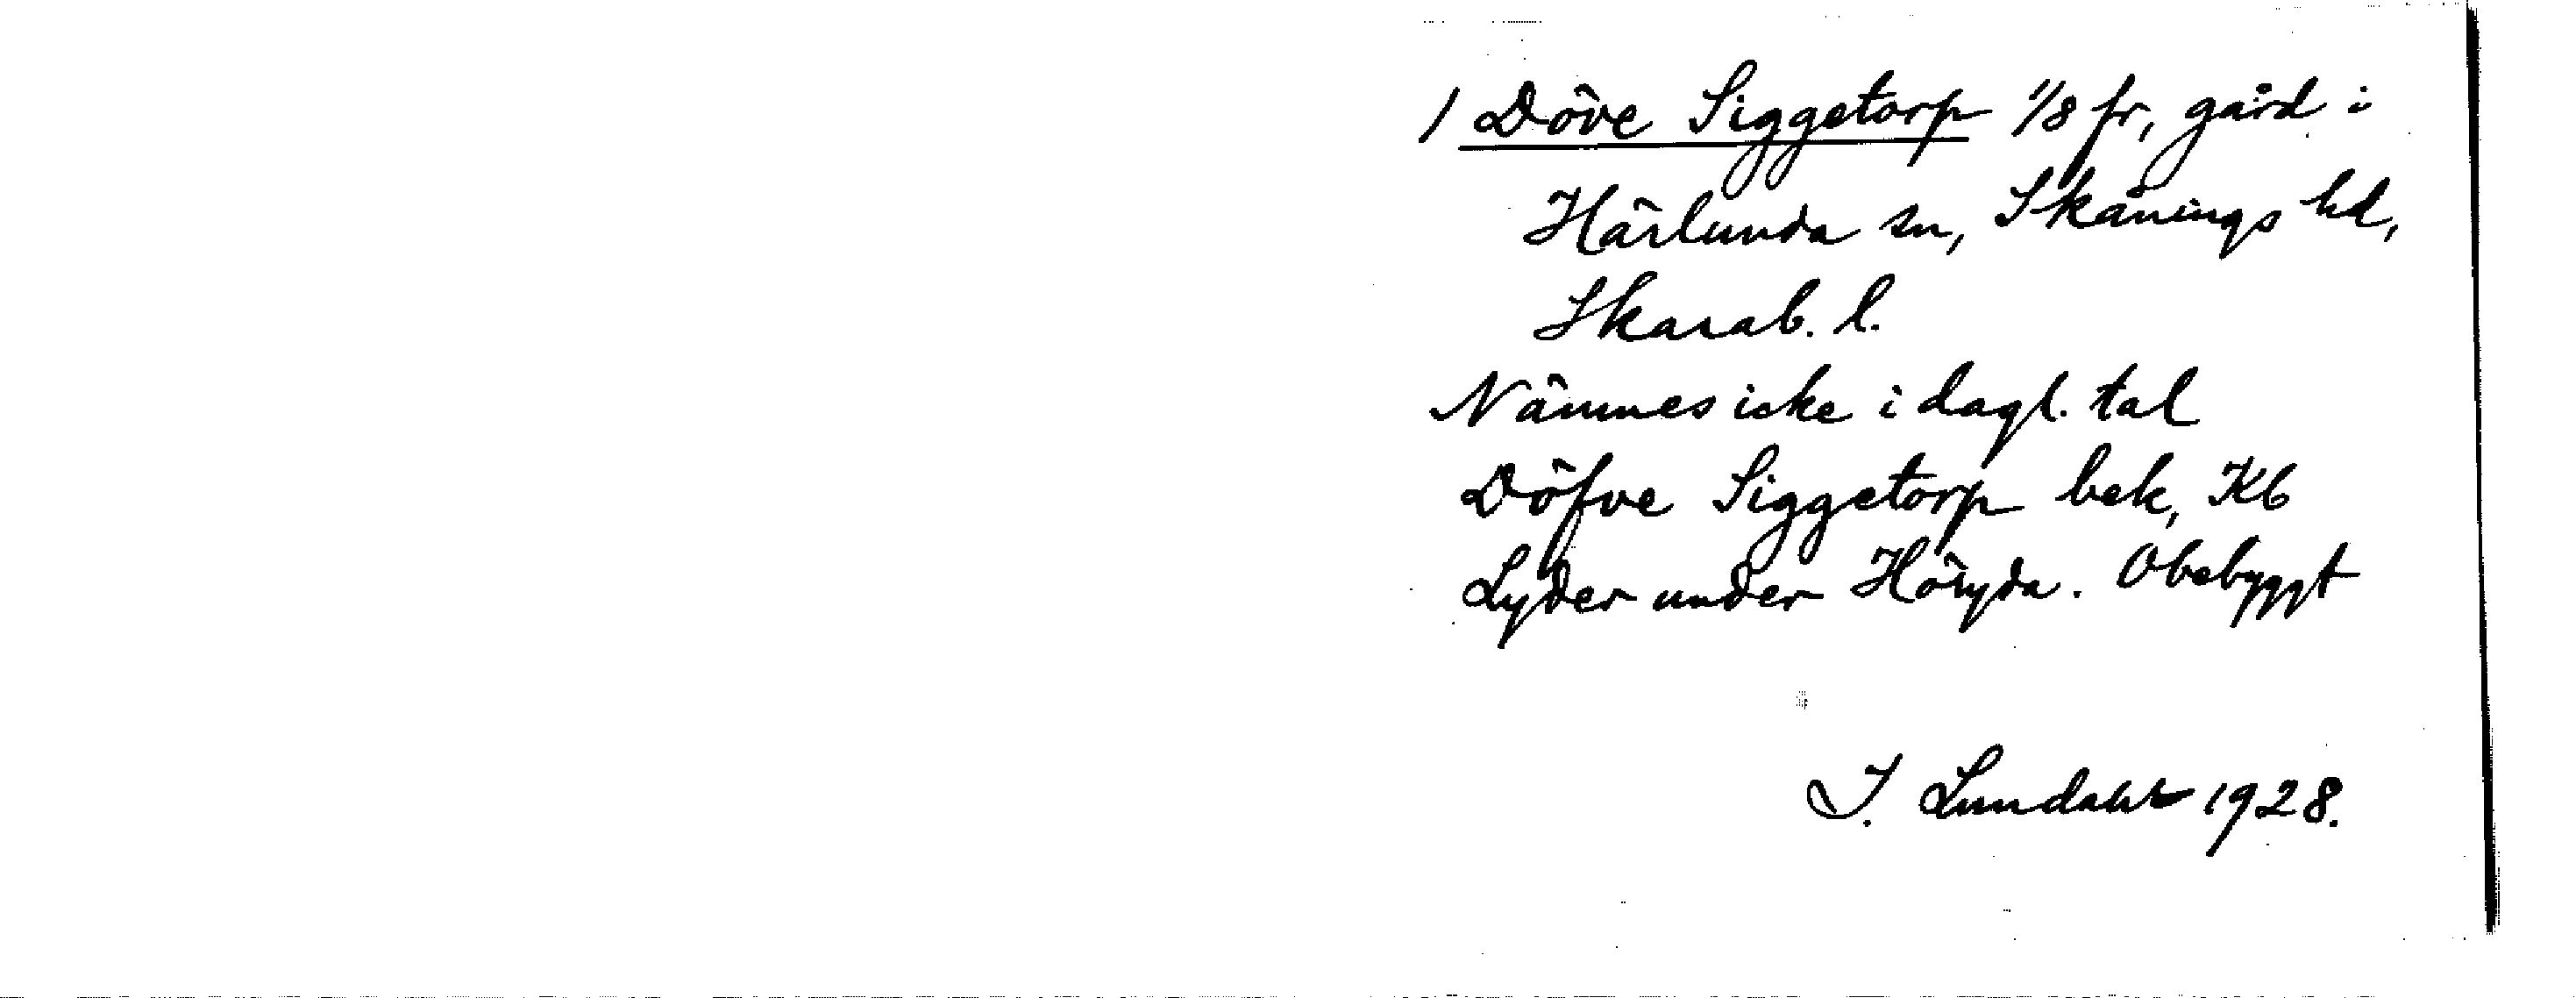 1 Döve Siggetorp 1/8 fr, gård i
Härlunda sn, Skånings hd,
Skarab. l.
Nämnes icke i dagl. tal
Döfve Siggetorp bek, Kb
Lyder under Höryda. Obebyggt
I. Lundahl 1928.